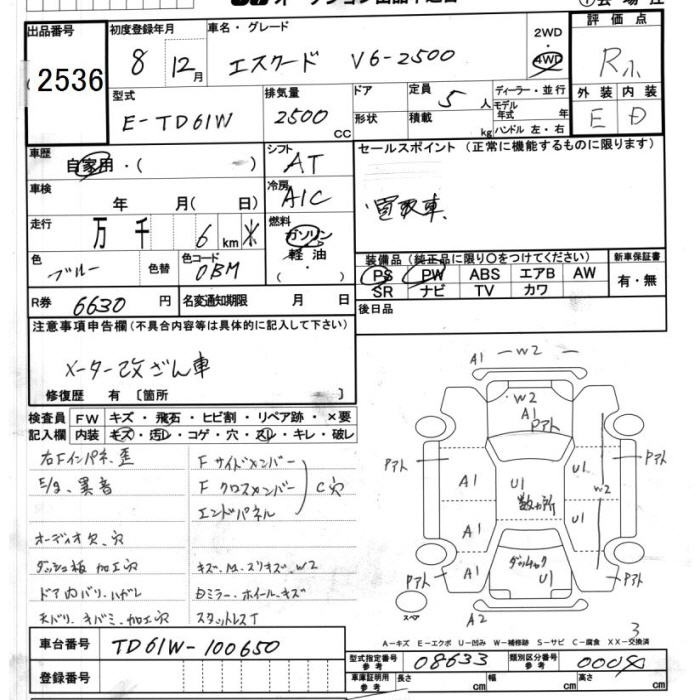 出品番号
2536
初度登録年月
8 12月
車名・グレード
エスクード V6-2500
2WD
4WD
評価点
R
型式
E-TD61W
排気量
2500
CC
ドア
形状
定員
5 人
積載
kg
ディーラー・並行
モデル
年式 年
ハンドル 左・右
外装 内装
E D
車歴
自家用・( )
車検
年 月( 日)
走行
万 千 6 km
色
ブルー
色替
色コード
0BM
R券 6630 円
名変通知期限 月 日
シフト
AT
冷房
A/C
燃料
ガソリン
軽油
( ・ )
セールスポイント (正常に機能するものに限ります)
買取車
装備品(純正品に限り〇をつけてください)
PS PW ABS エアB AW
SR ナビ TV カワ
新車保証書
有・無
後日品
注意事項申告欄(不具合内容等は具体的に記入して下さい)
メーター改ざん車
修復歴 有 [箇所 ]
検査員
記入欄
FW キズ・飛石・ヒビ割・リペア跡・×要
内装 キズ・汚レ・コゲ・穴・スレ・キレ・破レ
右Fインパネ、歪
E/g、異音
オーディオ欠、穴
ダッシュ板 加工穴
ドア内バリ、ハガレ
天バリ、キバミ、加工穴
Fサイドメンバー
Fクロスメンバー
エンドパネル
C穴
キズ、M、スリキズ、W2
ミラー・ホイール・キズ
スタットレスT
A1 W2 A1
W2
A1
Pアト
Pアト
Pアト
A1
U1
数ヵ所
U1
W2
A1
U1
A1
ダッキャク
U1
Pアト
Pアト
スペア
A2
3
A-キズ E-エクボ U-凹み W-補修跡 S-サビ C-腐食 XX-交換済
車台番号
TD61W-100650
登録番号
型式指定番号
参考
08633
類別区分番号
参考
車庫証明用
参考
長さ cm
幅 cm
高さ cm